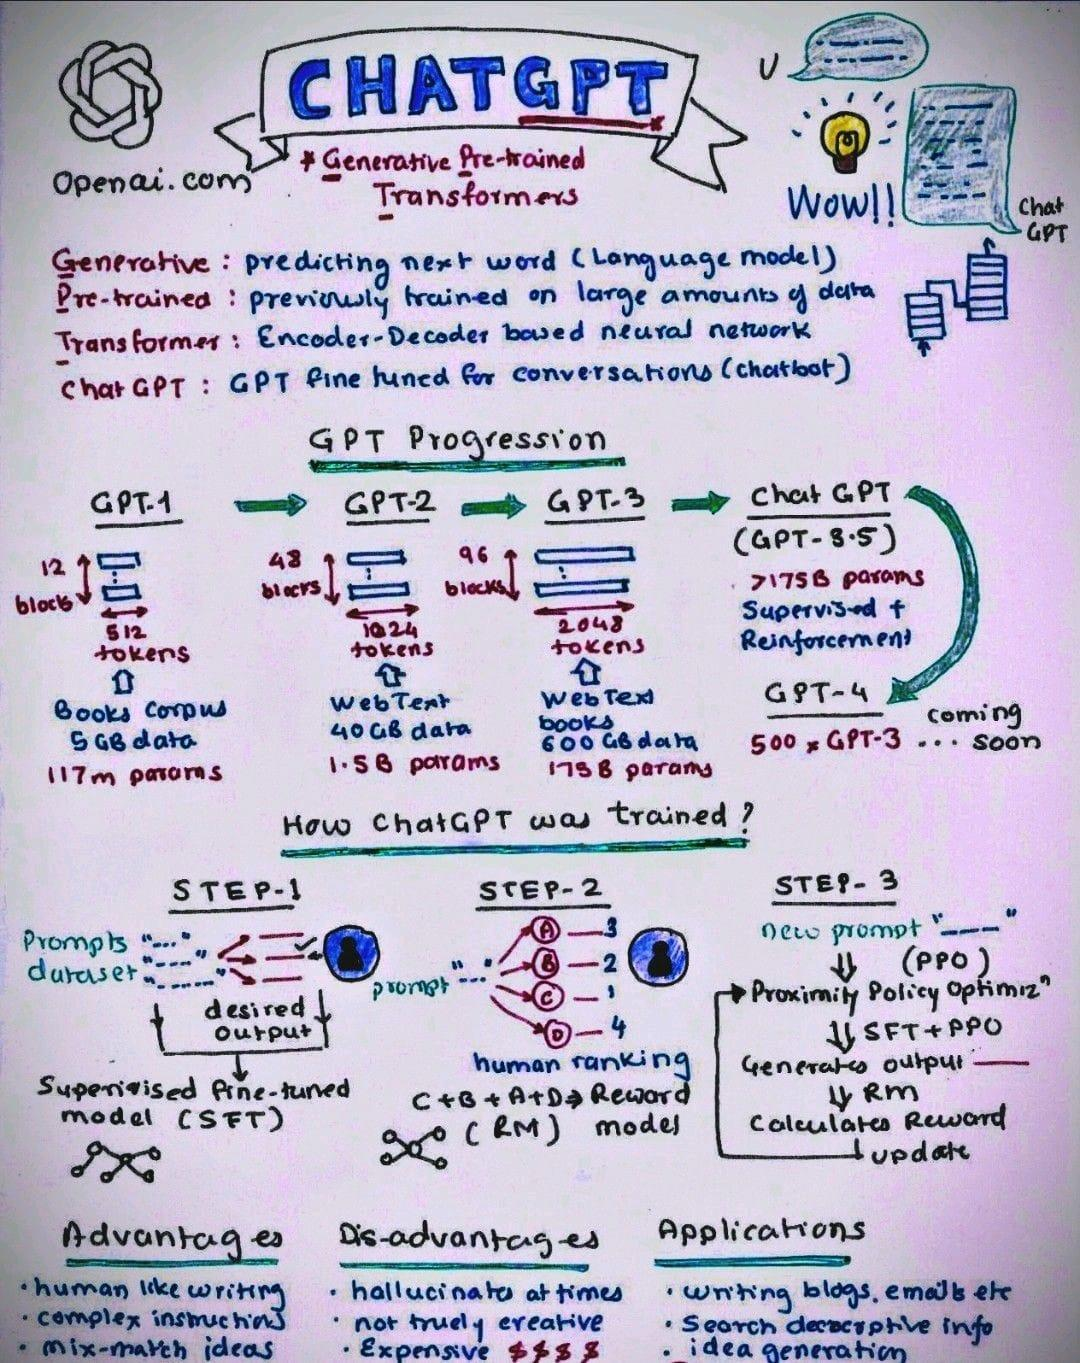 CHATGPT
Openai.com
* Generative Pre-trained
Transformers
U
Wow!!
Chat
GPT
Generative : predicting next word (Language model)
Pre-trained : previously trained on large amounts of data
Transformer : Encoder-Decoder based neural network
Chat GPT : GPT fine tuned for conversations (chatbot)
GPT Progression
GPT-1
12
blocks
512
tokens
Books Corpus
5 GB data
117m params
GPT-2
48
blocks
1024
tokens
WebText
40 GB data
1.5B params
GPT-3
96
blocks
2048
tokens
WebText
books
600 GB data
175B params
Chat GPT
(GPT-3.5)
>175B params
Supervised +
Reinforcement
GPT-4
500 x GPT-3 ... coming soon
How ChatGPT was trained?
STEP-1
Prompts "..."
dataset
desired
output
Supervised fine-tuned
model (SFT)
STEP-2
prompt "..."
A 3
B 2
C 1
D 4
human ranking
C+B+A+D → Reward
(RM) model
STEP-3
new prompt "___"
(PPO)
Proximity Policy Optimizⁿ
SFT+PPO
Generates output
RM
Calculates Reward
update
Advantages
• human like writing
• complex instructions
• mix-match ideas
Dis-advantages
• hallucinates at times
• not truely creative
• Expensive $$$$
Applications
• writing blogs, emails etc
• Search info
• idea generation